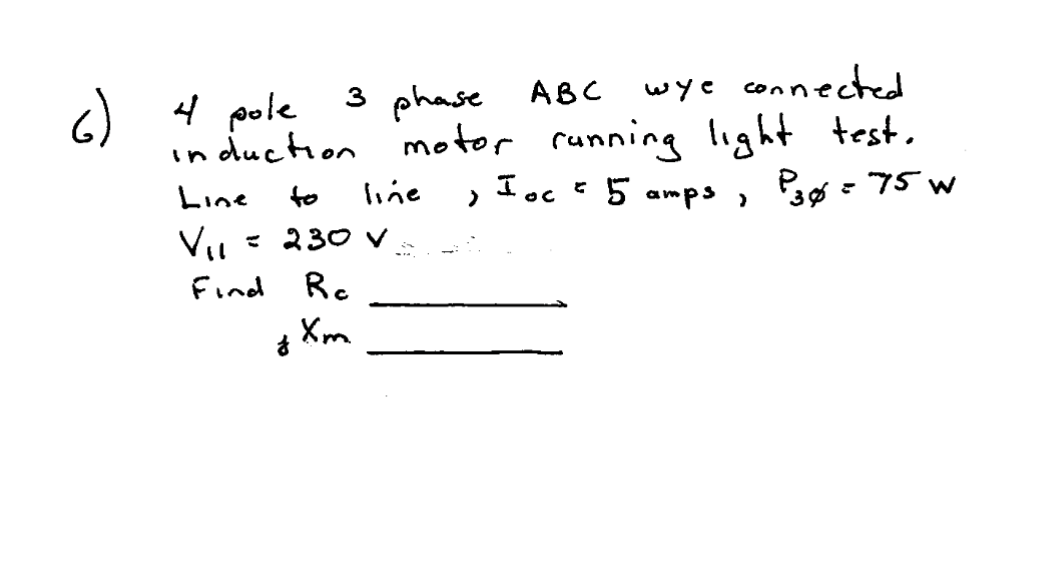 6) 4 pole 3 phase ABC wye connected
induction motor running light test.
Line to line , Ioc = 5 amps , P3ø = 75 W
Vll = 230 V
Find Rc
jXm